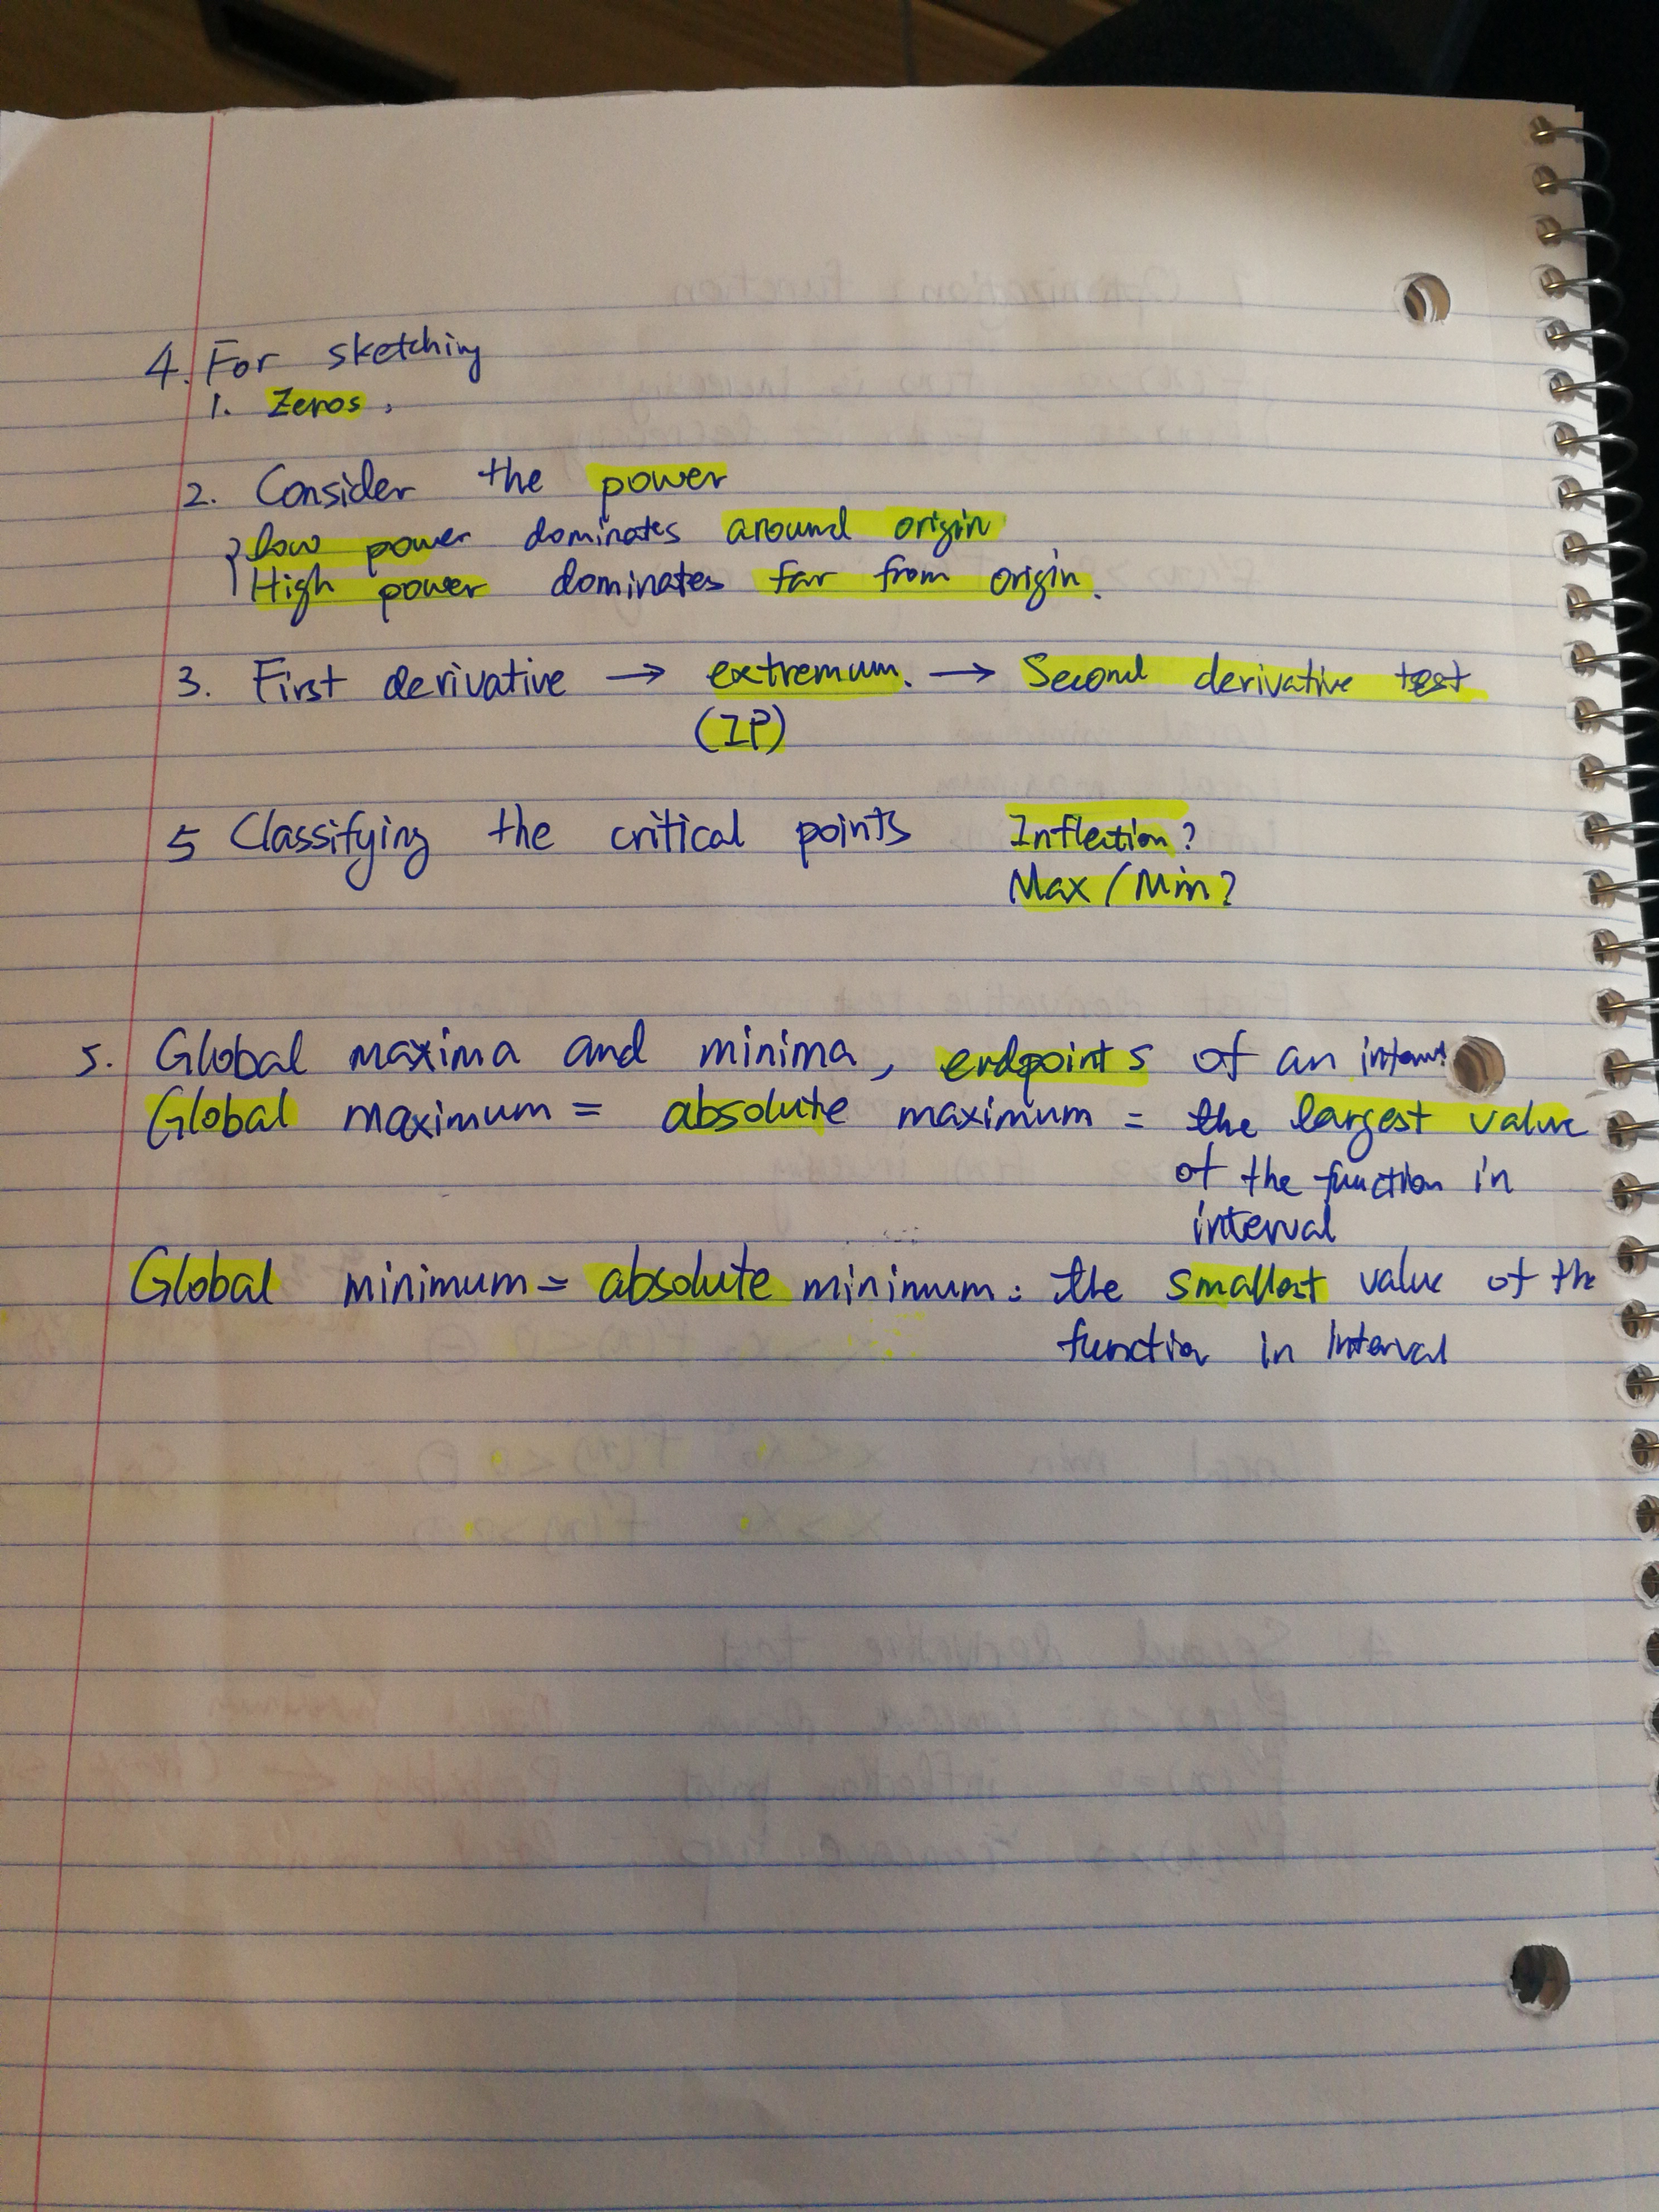 4. For sketching
1. Zeros.
2. Consider the power
low power dominates around origin
High power dominates far from origin.
3. First derivative → extremum. → Second derivative test
(IP)
5 Classifying the critical points Inflection?
Max / Min?
5. Global maxima and minima, endpoints of an interval
Global maximum = absolute maximum = the largest value
of the function in
interval
Global minimum = absolute minimum: the smallest value of the
function in interval